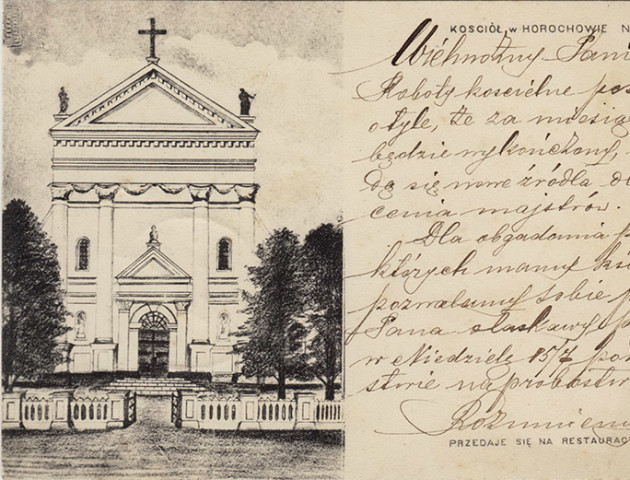 KOŚCIÓŁ w HOROCHOWIE N
Wielmożny Pani
Roboty kościelne pos
o tyle, że za miesią
będzie wykończony,
dą się nowe źródła do
cenia majstrów.
Dla obgadania p
których mamy kil
pozwalamy sobie p
Pana o łaskawy p
w Niedzielę 15/7 po
stwie na probostw
PRZEDAJE SIĘ NA RESTAURAC